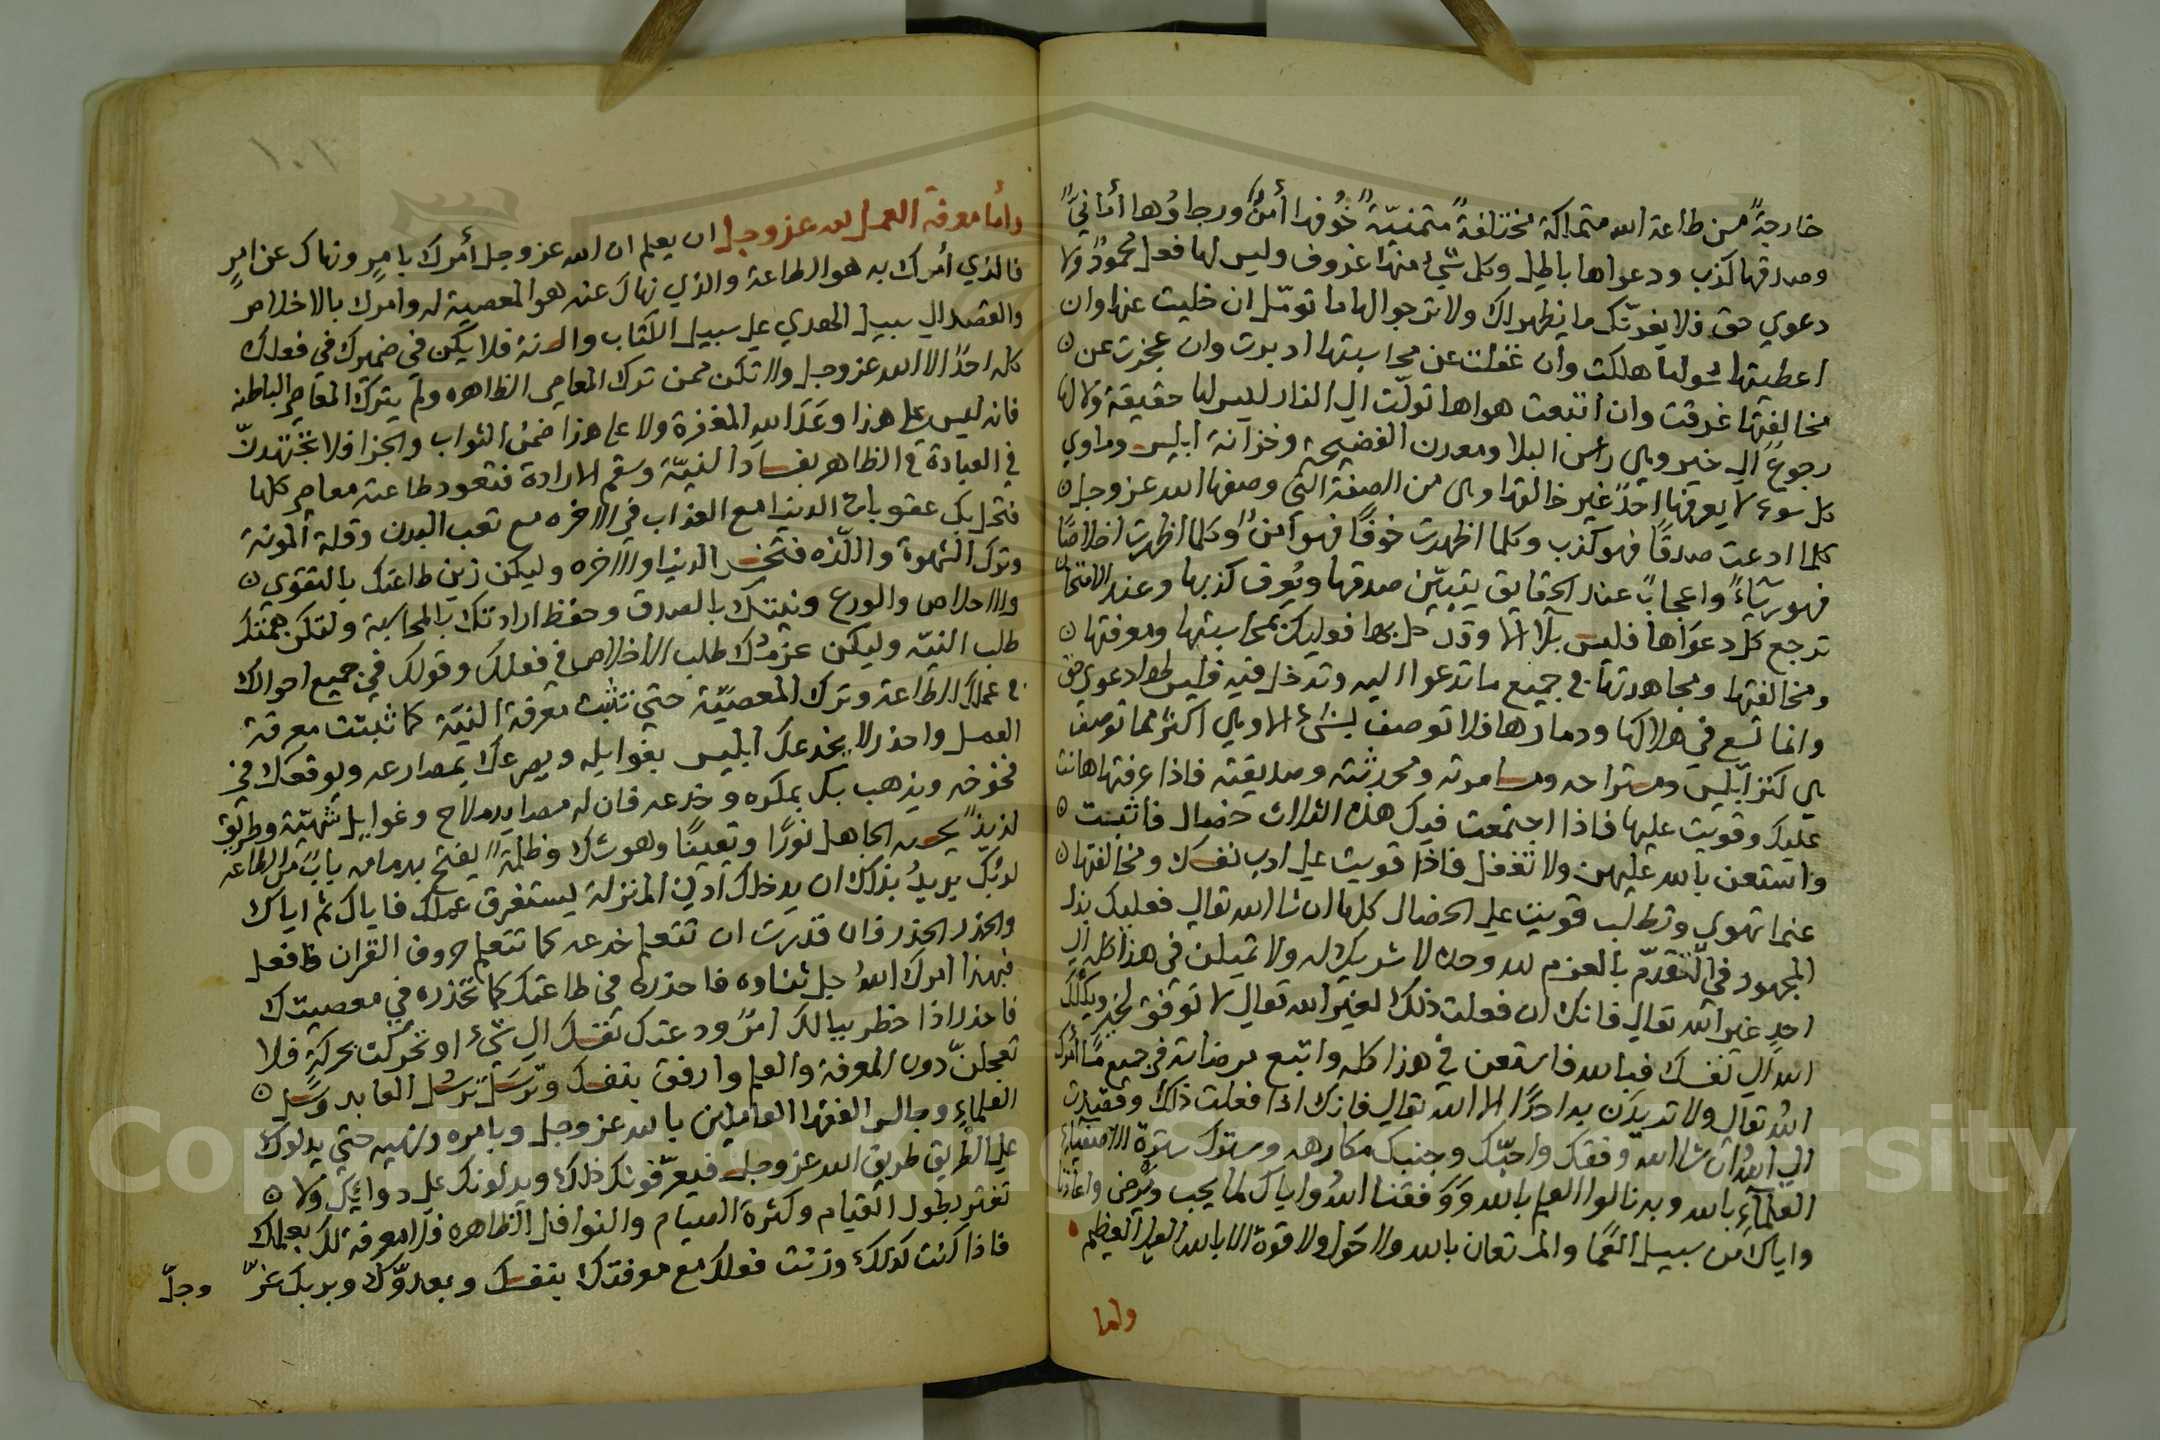 خارجةً من طاعة الله متملكة مختلفةً متمنيّةً خوفها أمنٌ ورجاؤها أمانيٌّ
وصدقها كذب ودعواها باطل وكل شيء منها غروف وليس لها فعل محمودٌ ولا
دعوي حق فلا يغرنّك ما يظهر لك ولا ترجوا لها ما توٓمّل ان خليت عنها وان
اعطيتها سُولها هلكت وأن غفلت عن محاسبتها ادبرت وان عجزت عن
مخالفتها غرقت وان اتبعت هواها تولّت الي النار ليس لها حقيقة ولا لها
رجوع الي خير وهي راس البلا ومعدن الفضيحة وخزانة ابليس وماوي
كل سوء لا يعرفها احدٌ غير خالقها وهى من الصفة التي وصفها الله عز وجل
كلما ادعت صدقًا فهو كذب وكلما اظهرت خوفًا فهو أمنٌ وكلما اظهرت اخلاصًا
فهو رياءً واعجابً عند الحقايق يتبيّن صدقها ويُعرف كذبها وعند الامتحان
ترجع كل دعوَاها فليس بلاٌ الا وقد حل بها فعليك بمحاسبتها ومعرفتها
ومخالفتها ومجاهدتها في جميع ما تدعوا اليه وتدخل فيه فليس لها دعوي حق
وانما تسع في هلاكها ودمارها فلا توصف بشيء الا وهي اكثر مما توصف
هي كنز ابليس ومستراحه ومسامرته ومحدثته وصديقته فاذا عرفتها هانت
عليك وقويت عليها فاذا اجتمعت فيك هذه الثلاث خصال فاثبت
واستعن بالله عليهن ولا تغفل فاذا قويت علي ادب نفسك ومخالفتها
عنما تهوي وتطلب قويت علي الخصال كلها ان شا الله تعالي فعليك بذل
المجهود في التقدّم بالعزم لله وحده لا شريك له ولا تميلن في هذا كله الي
احدٍ غير الله تعالي فانك ان فعلت ذلك لغير الله تعالي لا توفق لخير ويكلك
الله الي نفسك فبالله فاستعن في هذا كله واتبع مرضاته في جميع ما أمرك
الله تعالي ولا تريدَن به احدًا الا الله تعالي فانك اذا فعلت ذلك وقصدت
الي الله ان شا الله وفقك واحبّك وجنبك مكارهه وسترك سترة الاصفياء
العلماءِ بالله وبه نالوا العلم بالله وَوَفقنا اللهُ واياك لما يحب ويرضي واعاذنا
واياك من سبيل العَما والمستعان بالله ولا حَول ولا قوة الا بالله العلي العظيم
واما
١٠١
وأما معرفة العمل لله عز وجل ان يعلم ان الله عز وجل أمرك بامرٍ ونهاك عن امرٍ
فالذي أمرك به هو الطاعة والذي نهاك عنه هو المعصية له وأمرك بالاخلاص
والقصد الي سبيل الهدي علي سبيل الكتاب والسنة فلا يكن في ضميرك في فعلك
كله احدًا الا الله عز وجل ولا تكن ممن ترك المعاصي الظاهره ولم يترك المعاصي الباطنه
فانه ليس علي هذا وعَدَ الله المغفرة ولا علي هذا ضمن الثواب والجزا فلا تجتهدنّ
في العبادة في الظاهر بفساد النيّة وسقم الارادة فتعود طاعته معاصي كلها
فتحل بك عقوبات الدنيا مع العذاب في الاخره مع تعب البدن وقلة المونة
وترك الشهوة واللّذه فتخسر الدنيا والاخره وليكن زين طاعتك بالتقوي
والاخلاص والورع ونيتك بالصدق وحفظ ارادتك بالمحاسبة ولتكن همتك
طلب النيّه وليكن عزمُك طلب الاخلاص في فعلك وقولك في جميع احوالك
في عملك الطاعة وترك المعصيّة حتي تثبت معرفة النيّة كما ثبتت معرفة
العمل واحذر لا يخدعك ابليس بغوايله ويصرعك بمصارعه ويوقعك في
فخوخه ويذهب بك بمكره وخدعه فان له مصايد ملاح وغوايل شهيّة وطرايق
لذيذةً يحسبه الجاهل نورًا ويقينًا وهو شك وظلمةً يفتح بها مايه بابٍ من الطاعه
لوئبك يريدُ بذلك ان يدخلك ادني المنزلة ليستغرق عملك فاياك ثم اياك
والحذر الحذر فان قدرت ان تتعلم خدعه كما تتعلم حروف القران فافعل
فبهذا امرك اللهُ جل ثناوه فاحذره في طاعتك كما تحذره في معصيتك
فاحذر اذا خطر ببالك امرٌ ودعتك نفسك الي شيءٍ او تحركت بحركةٍ فلا
تعجلنّ دون المعرفة والعلم وارفق بنفسك وترسَّل ترسُّل العابد وسَل
العلماءِ وجالس الفقها العاملين بالله عز وجل وبامره ونهيه حتي يدلوك
علي الطّريق طريق الله عز وجل فيعرّفونك ذلك ويدلونك علي دوايك ولا
تغتر بطول القيام وكثرة الصيام والنوافل الظاهره فلا معرفة لك بعملك
فاذا كنت كذلك وزنت فعلك مع معرفتك بنفسك وبعدوّك وبربك عزّ
وجلّ
Copyright © King Saud University